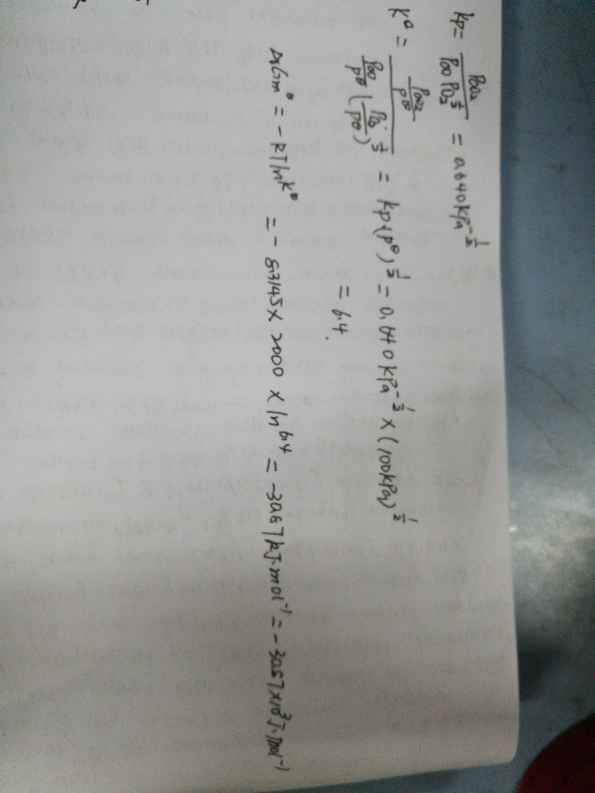 Kp = PCO₂ / (PCO PO₂^½) = 0.640 kPa^-½
K^θ = (PCO₂/p^θ) / ((PCO/p^θ)(PO₂/p^θ)^½) = Kp·(p^θ)^½ = 0.640 kPa^-½ × (100kPa)^½
= 6.4.
ΔrGm^θ = -RTlnK^θ = -8.3145 × 2000 × ln6.4 = -30.87 kJ·mol⁻¹ = -30.87×10³ J·mol⁻¹